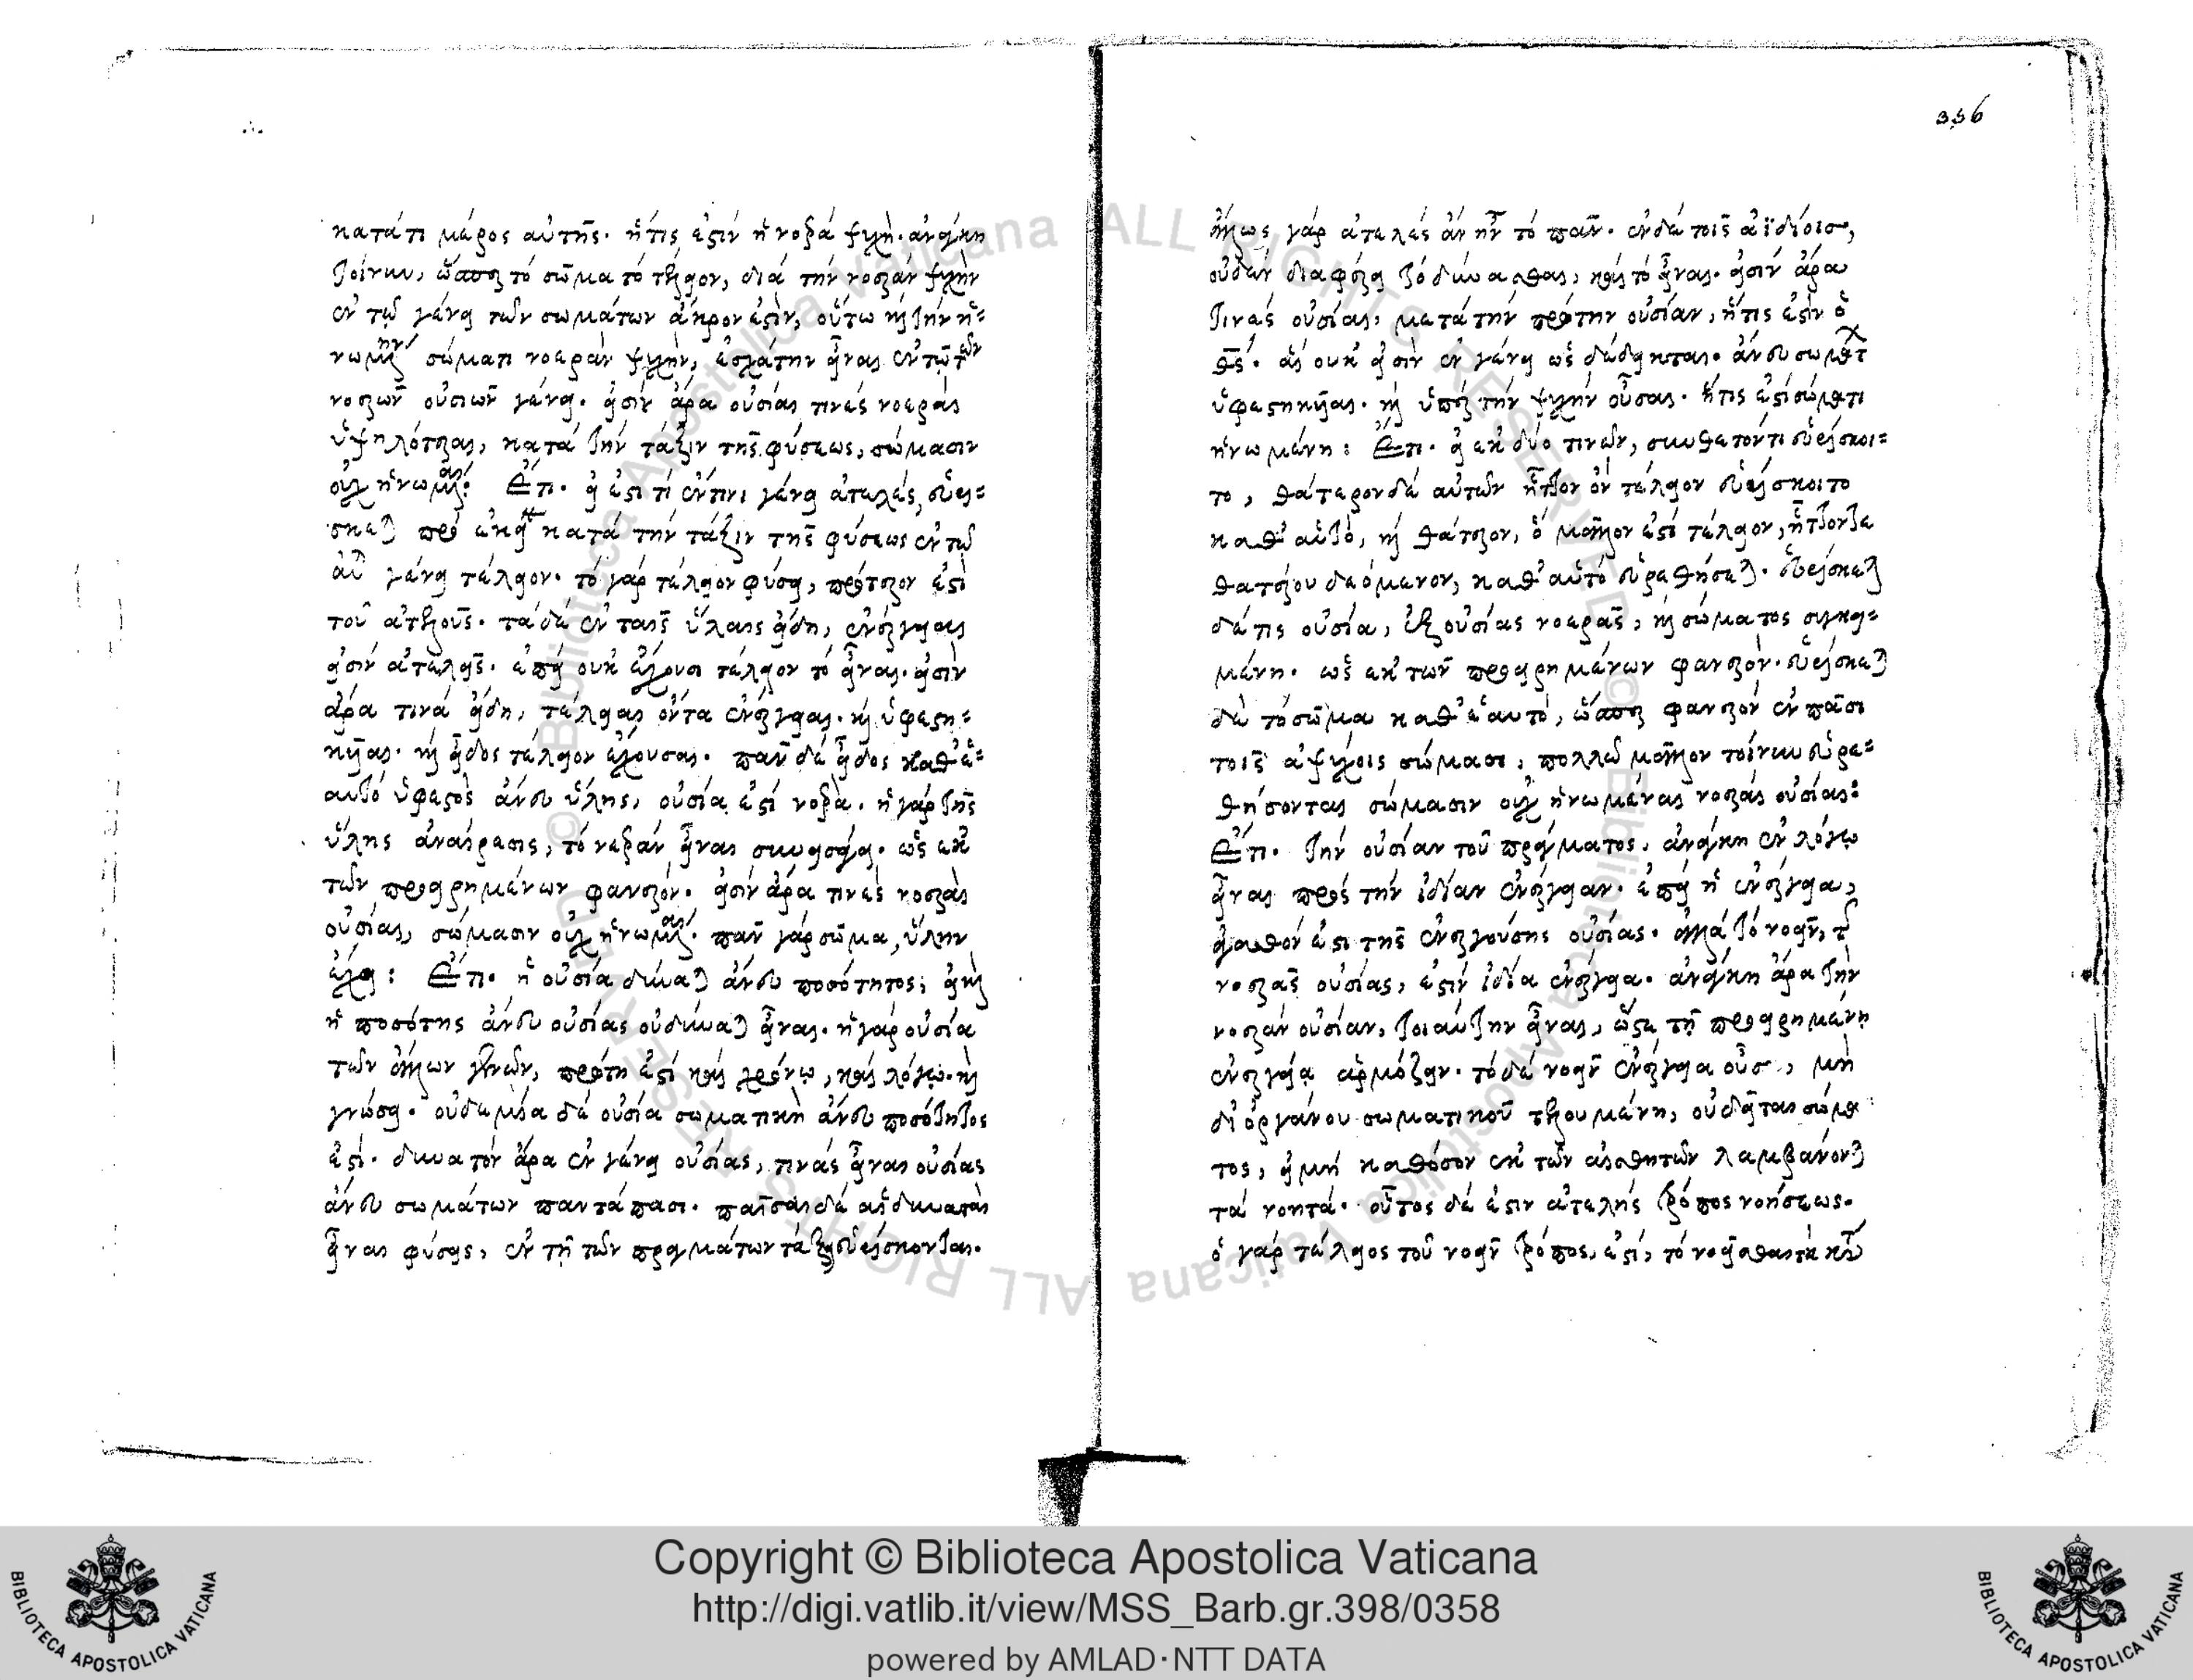 336
κατάτι μέρος αὐτῆς. ἥτις ἐστὶν ἡ νοερὰ ψυχή. ἀνάγκη
τοίνυν, ὥσπερ τὸ σῶμα τὸ τέλειον, διὰ τὴν νοερὰν ψυχὴν
ἐν τῷ γένει τῶν σωμάτων ἄκρον ἐστὶν, οὕτω καὶ τὴν ἡ=
νωμένην σώματι νοερὰν ψυχὴν, ἐσχάτην εἶναι ἐν τῷ τῶν
νοερῶν οὐσιῶν γένει. εἰσὶν ἄρα οὐσίαι τινὲς νοεραὶ
ὑψηλότεραι, κατὰ τὴν τάξιν τῆς φύσεως, σώμασιν
οὐχ ἡνωμέναι: Ἔτι. εἰ ἐστί τι ἔν τινι γένει ἀτελὲς, εὑρί=
σκεται πρὸ ἐκείνου κατὰ τὴν τάξιν τῆς φύσεως ἐν τῷ
αὐτῷ γένει τέλειον. τὸ γὰρ τέλειον φύσει, πρότερον ἐστὶ
τοῦ ἀτελοῦς. τὰ δὲ ἐν ταῖς ὕλαις εἴδη, ἐνέργειαι
εἰσὶν ἀτελεῖς. ἐπεὶ οὐκ ἔχουσι τέλειον τὸ εἶναι. εἰσὶν
ἄρα τινὰ εἴδη, τέλειαι ὄντα ἐνέργειαι. καὶ ὑφεστη=
κυῖαι. καὶ εἶδος τέλειον ἔχουσαι. πᾶν δὲ εἶδος καθ' ἑ=
αυτὸ ὑφεστὸς ἄνευ ὕλης, οὐσία ἐστὶ νοερά. ἡ γὰρ τῆς
ὕλης ἀναίρεσις, τὸ νοερὸν εἶναι συνεισφέρει. ὡς ἐκ
τῶν προειρημένων φανερόν. εἰσὶν ἄρα τινὲς νοεραὶ
οὐσίαι, σώμασιν οὐχ ἡνωμέναι. πᾶν γὰρ σῶμα, ὕλην
ἔχει: Ἔτι. ἡ οὐσία δύναται ἄνευ ποσότητος, εἰ καὶ
ἡ ποσότης ἄνευ οὐσίας οὐ δύναται εἶναι. ἡ γὰρ οὐσία
τῶν ἄλλων γενῶν, πρώτη ἐστὶ καὶ χρόνῳ, καὶ λόγῳ. καὶ
γνώσει. οὐδεμία δὲ οὐσία σωματικὴ ἄνευ ποσότητος
ἐστί. δυνατὸν ἄρα ἐν γένει οὐσίας, τινὰς εἶναι οὐσίας
ἄνευ σωμάτων παντάπασι. πᾶσαι δὲ αἱ δυναταὶ
εἶναι φύσεις, ἐν τῇ τῶν πραγμάτων τάξει εὑρίσκονται.
ἄλλως γὰρ ἀτελὲς ἂν ἦν τὸ πᾶν. ἐν δὲ τοῖς ἀϊδίοις,
οὐδὲν διαφέρει τὸ δύνασθαι, καὶ τὸ εἶναι. εἰσὶν ἄρα
τινὲς οὐσίαι, μετὰ τὴν πρώτην οὐσίαν, ἥτις ἐστὶν ὁ
θς. αἳ οὐκ εἰσὶν ἐν γένει ὡς δέδεικται. ἄνευ σώματος
ὑφεστηκυῖαι. καὶ ὑπὲρ τὴν ψυχὴν οὖσαι. ἥτις ἐστὶ σώματι
ἡνωμένη: Ἔτι. εἰ ἐκ δύο τινῶν, συνθετόν τι εὑρίσκοι=
το, θάτερον δὲ αὐτῶν ἧττον ὂν τέλειον εὑρίσκοιτο
καθ' αὑτὸ, καὶ θάτερον, ὃ μᾶλλόν ἐστι τέλειον, ἧττόν τε
θατέρου δεόμενον, καθ' αὑτὸ εὑρεθήσεται. εὑρίσκεται
δέ τις οὐσία, ἐξ οὐσίας νοερᾶς, καὶ σώματος συγκει=
μένη. ὡς ἐκ τῶν προειρημένων φανερόν. εὑρίσκεται
δὲ τὸ σῶμα καθ' ἑαυτὸ, ὥσπερ φανερὸν ἐν πᾶσι
τοῖς ἀψύχοις σώμασι, πολλῷ μᾶλλον τοίνυν εὑρε=
θήσονται σώμασιν οὐχ ἡνωμέναι νοεραὶ οὐσίαι:
Ἔτι. τὴν οὐσίαν τοῦ πράγματος, ἀνάγκη ἐν λόγῳ
εἶναι πρὸς τὴν ἰδίαν ἐνέργειαν. ἐπεὶ ἡ ἐνέργεια,
ἀγαθόν ἐστι τῆς ἐνεργούσης οὐσίας. ἀλλὰ τὸ νοεῖν, τῆς
νοερᾶς οὐσίας, ἐστὶν ἰδία ἐνέργεια. ἀνάγκη ἄρα τὴν
νοερὰν οὐσίαν, τοιαύτην εἶναι, ὥστε τῇ προειρημένῃ
ἐνεργείᾳ ἁρμόζειν. τὸ δὲ νοεῖν ἐνέργεια οὖσα, μὴ
δι' ὀργάνου σωματικοῦ τελουμένη, οὐ δεῖται σώμα
τος, εἰ μὴ καθόσον ἐκ τῶν αἰσθητῶν λαμβάνονται
τὰ νοητά. οὗτος δέ ἐστιν ἀτελὴς τρόπος νοήσεως.
ὁ γὰρ τέλειος τοῦ νοεῖν τρόπος, ἐστὶ, τὸ νοεῖσθαι τὰ κατὰ
Copyright © Biblioteca Apostolica Vaticana
http://digi.vatlib.it/view/MSS_Barb.gr.398/0358
powered by AMLAD·NTT DATA
BIBLIOTECA APOSTOLICA VATICANA
BIBLIOTECA APOSTOLICA VATICANA